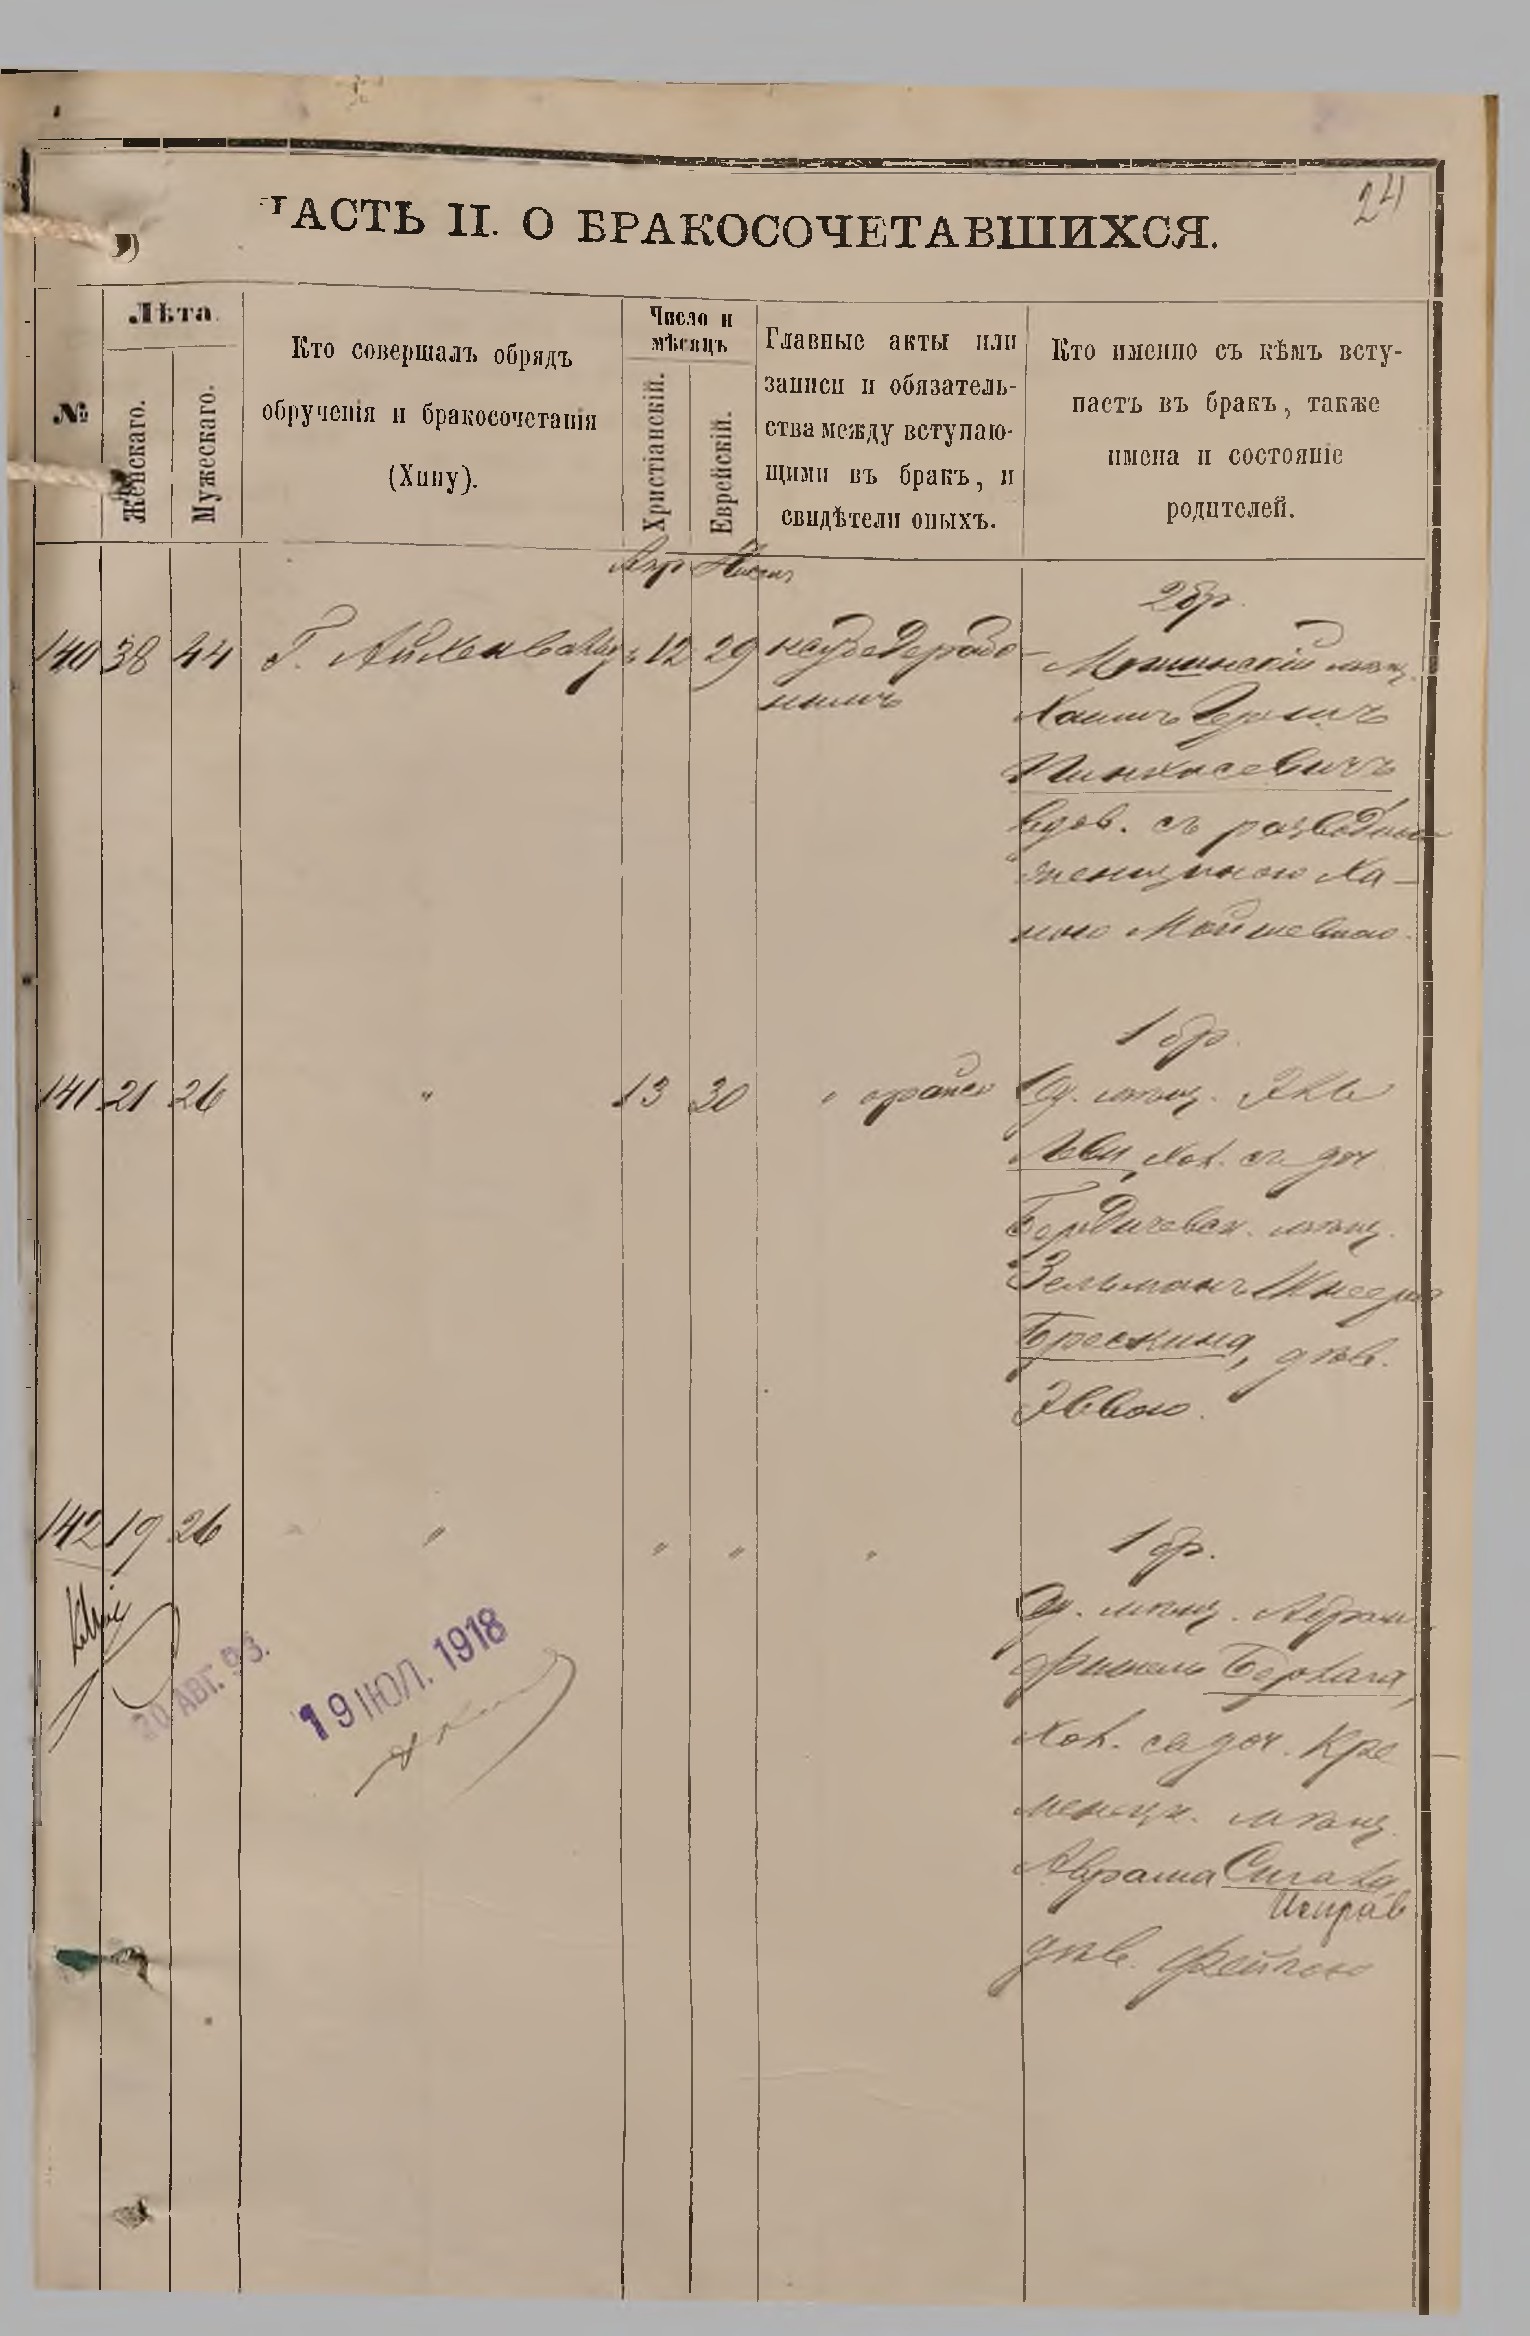 24
ЧАСТЬ II. О БРАКОСОЧЕТАВШИХСЯ.
№
Лѣта.
Женскаго.
Мужескаго.
Кто совершалъ обрядъ
обрученія и бракосочетанія
(Хупу).
Число и
мѣсяцъ
Христіанскій.
Еврейскій.
Главные акты или
записи и обязатель-
ства между вступаю-
щими въ бракъ, и
свидѣтели оныхъ.
Кто именно съ кѣмъ всту-
паетъ въ бракъ, также
имена и состояніе
родителей.
Апр Нисан
140 38 44 Г. Айхенвальдъ 12 29
2 бр.
мѣщ.
Хаимъ Гершъ
Пинхасевичъ
вдов. съ разведен
женщиною Ха-
ною Мойшевною.
141 21 26 " 13 30 "
1 бр.
Од. мѣщ.
Леви, хол. съ доч
Бердичевск. мѣщ.
Зельманъ Шнеера
Брескина, дѣв.
Эввою.
142 19 26 " " " "
1 бр.
Од. мѣщ. Абрам
Фишель
хол. съ доч. Кре
менецк. мѣщ.
Аврама Сигала
Исправ
дѣв. Фейгою
20 АВГ. 93.
19 ІЮЛ. 1918